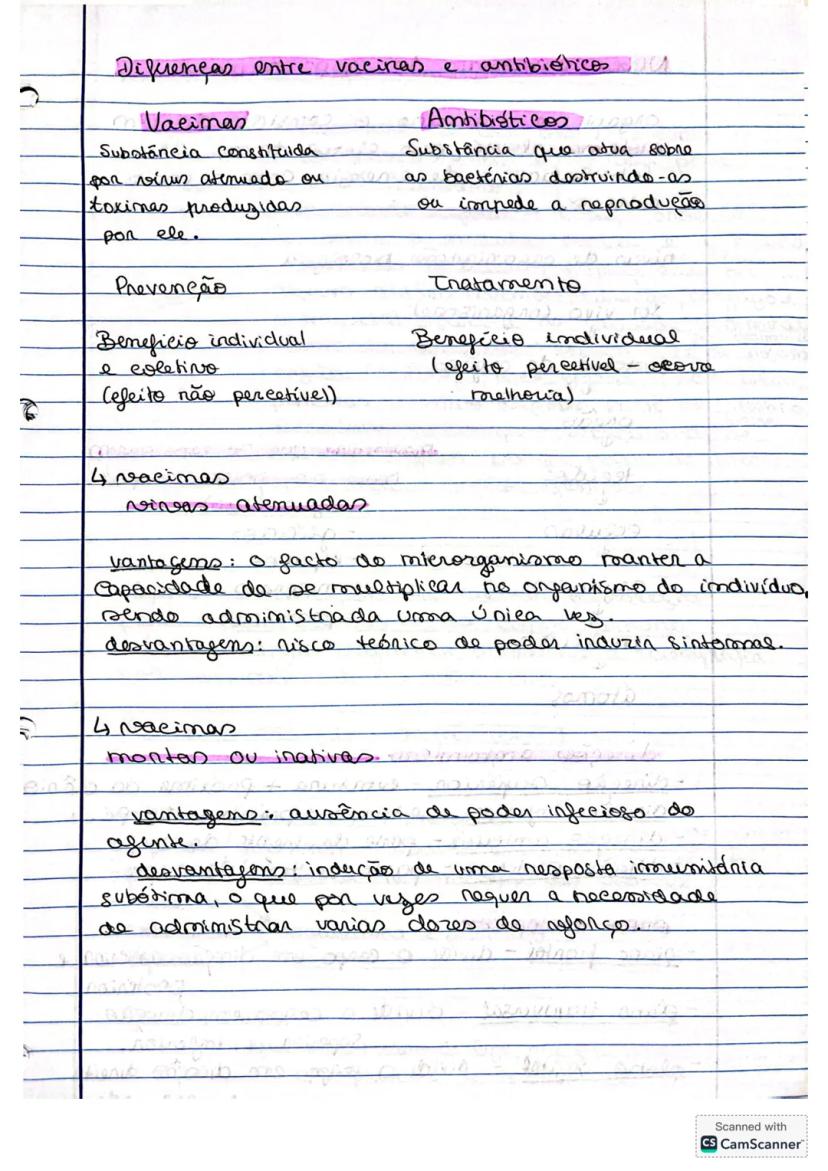 Diferenças entre vacinas e antibióticos
Vacinas
Antibióticos
Substância constituída
por vírus atenuado ou
toxinas produzidas
por ele.
Substância que atua sobre
as bactérias destruindo-as
ou impede a reprodução
Prevenção
Tratamento
Benefício individual
e coletivo
(efeito não percetível)
Benefício individual
(efeito percetível - ocorre
melhoria)
↳ vacinas
vivas atenuadas
vantagens: o facto do microrganismo manter a
capacidade de se multiplicar no organismo do indivíduo,
sendo administrada uma única vez.
desvantagens: risco teórico de poder induzir sintomas.
↳ vacinas
mortas ou inativas
vantagens: ausência de poder infecioso do
agente.
desvantagens: indução de uma resposta imunitária
subótima, o que por vezes requer a necessidade
de administrar varias dozes de reforço.
Scanned with
CS CamScanner